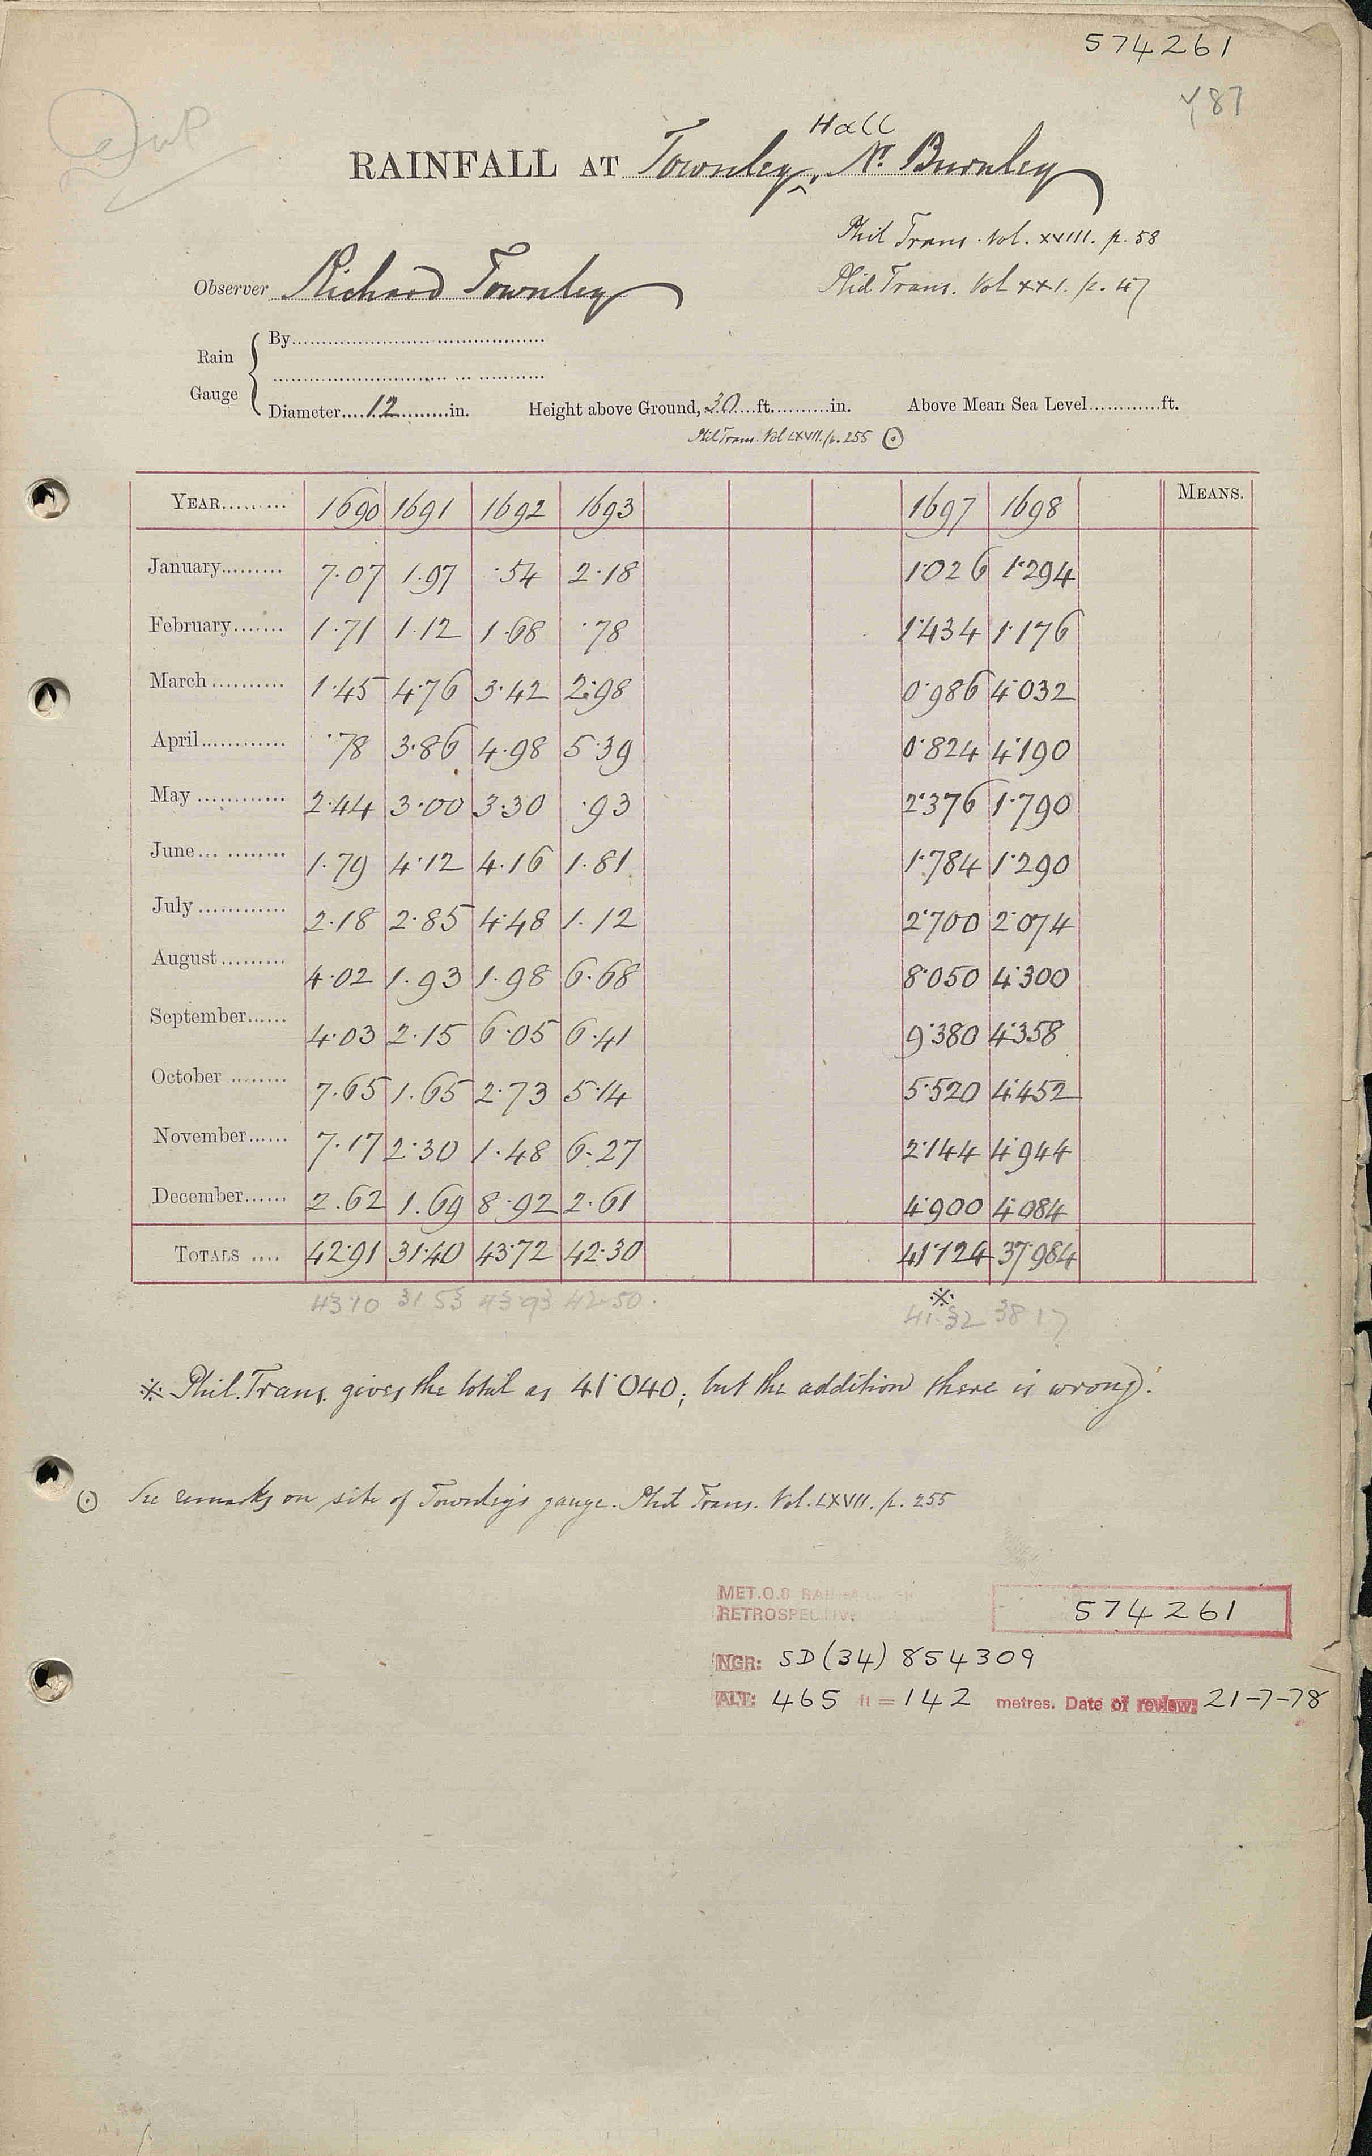 574261
RAINFALL AT Townley, Hall Nr. Burnley
Phil Trans. Vol. XVIII. p. 58
Observer Richard Townley
Phil Trans. Vol XXI. p. 47
Rain Gauge
By
Diameter 12 in. Height above Ground, 30 ft. in. Above Mean Sea Level ft.
Phil Trans. Vol LXVII. p. 255 ⊙
YEAR 1690 1691 1692 1693 1697 1698 MEANS.
January 7.07 1.97 .54 2.18 1.026 1.294
February 1.71 1.12 1.68 .78 1.434 1.176
March 1.45 4.76 3.42 2.98 0.986 4.032
April .78 3.86 4.98 5.39 0.824 4.190
May 2.44 3.00 3.30 .93 2.376 1.790
June 1.79 4.12 4.16 1.81 1.784 1.290
July 2.18 2.85 4.48 1.12 2.700 2.074
August 4.02 1.93 1.98 6.68 8.050 4.300
September 4.03 2.15 6.05 6.41 9.380 4.358
October 7.65 1.65 2.73 5.14 5.520 4.452
November 7.17 2.30 1.48 6.27 2.144 4.944
December 2.62 1.69 8.92 2.61 4.900 4.084
TOTALS 42.91 31.40 43.72 42.30 41.124 37.984
43.10 31.53 43.93 42.50. ※ 41.32 38.17
※ Phil. Trans. gives the total as 41.040; but the addition there is wrong.
⊙ See remarks on site of Townley's gauge. Phil Trans. Vol. LXVII. p. 255
MET.O.8
RETROSPECTIVE
574261
NGR: SD (34) 854309
ALT: 465 ft = 142 metres. Date of review: 21-7-78